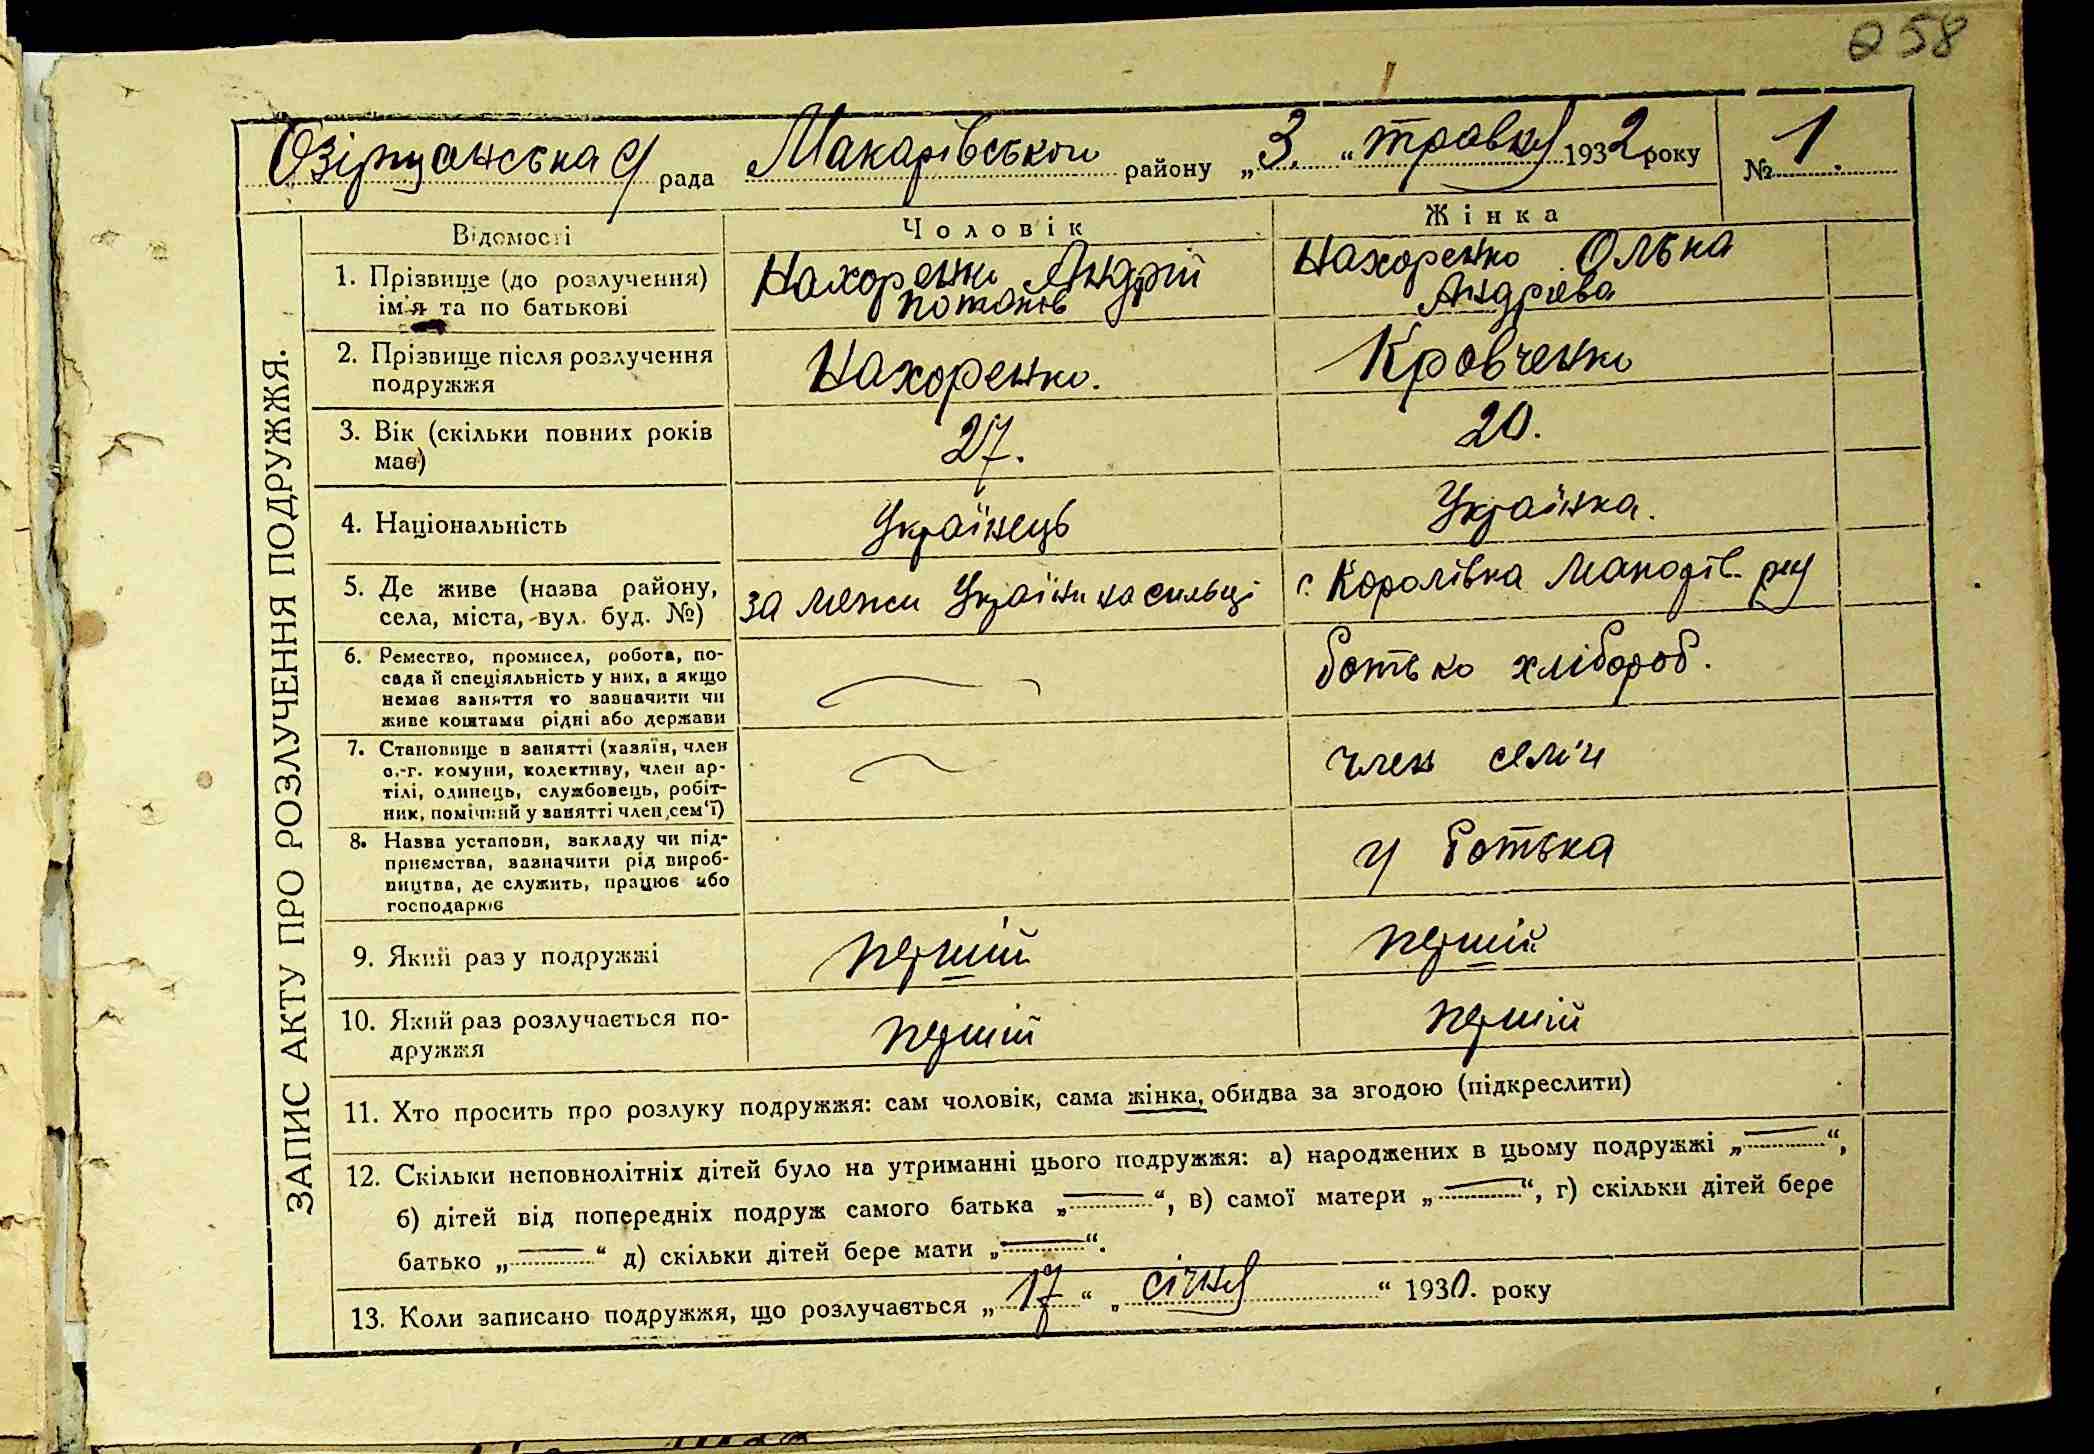 258
Озірщанська с/ рада Макарівського району „3.“ травня 1932 року № 1.
ЗАПИС АКТУ ПРО РОЗЛУЧЕННЯ ПОДРУЖЖЯ.
Відомості Чоловік Жінка
1. Прізвище (до розлучення) Нахоренко Андрій Нахоренко Олька
ім'я та по батькові Потапів Андрієва
2. Прізвище після розлучення Нахоренко. Кровченко
подружжя
3. Вік (скільки повних років 27. 20.
має)
4. Національність Українець Українка.
5. Де живе (назва району, за межи України на сильці с. Королівка Макарів. р-ну
села, міста, вул. буд. №)
6. Ремество, промисел, робота, по- ботько хлібороб.
сада й спеціяльність у них, а якщо
немає заняття то зазначити чи
живе коштами рідні або держави
7. Становище в занятті (хазяїн, член член семїі
с.-г. комуни, колективу, член ар-
тілі, одинець, службовець, робіт-
ник, помічний у занятті член сем'ї)
8. Назва установи, закладу чи під- у ботька
приємства, зазначити рід вироб-
ництва, де служить, працює або
господарює
9. Який раз у подружжі першій першій
10. Який раз розлучається по- першій першій
дружжя
11. Хто просить про розлуку подружжя: сам чоловік, сама жінка, обидва за згодою (підкреслити)
12. Скільки неповнолітніх дітей було на утриманні цього подружжя: а) народжених в цьому подружжі „—“,
б) дітей від попередніх подруж самого батька „—“, в) самої матери „—“, г) скільки дітей бере
батько „—“ д) скільки дітей бере мати „—“.
13. Коли записано подружжя, що розлучається „17“ „січня“ 1930. року